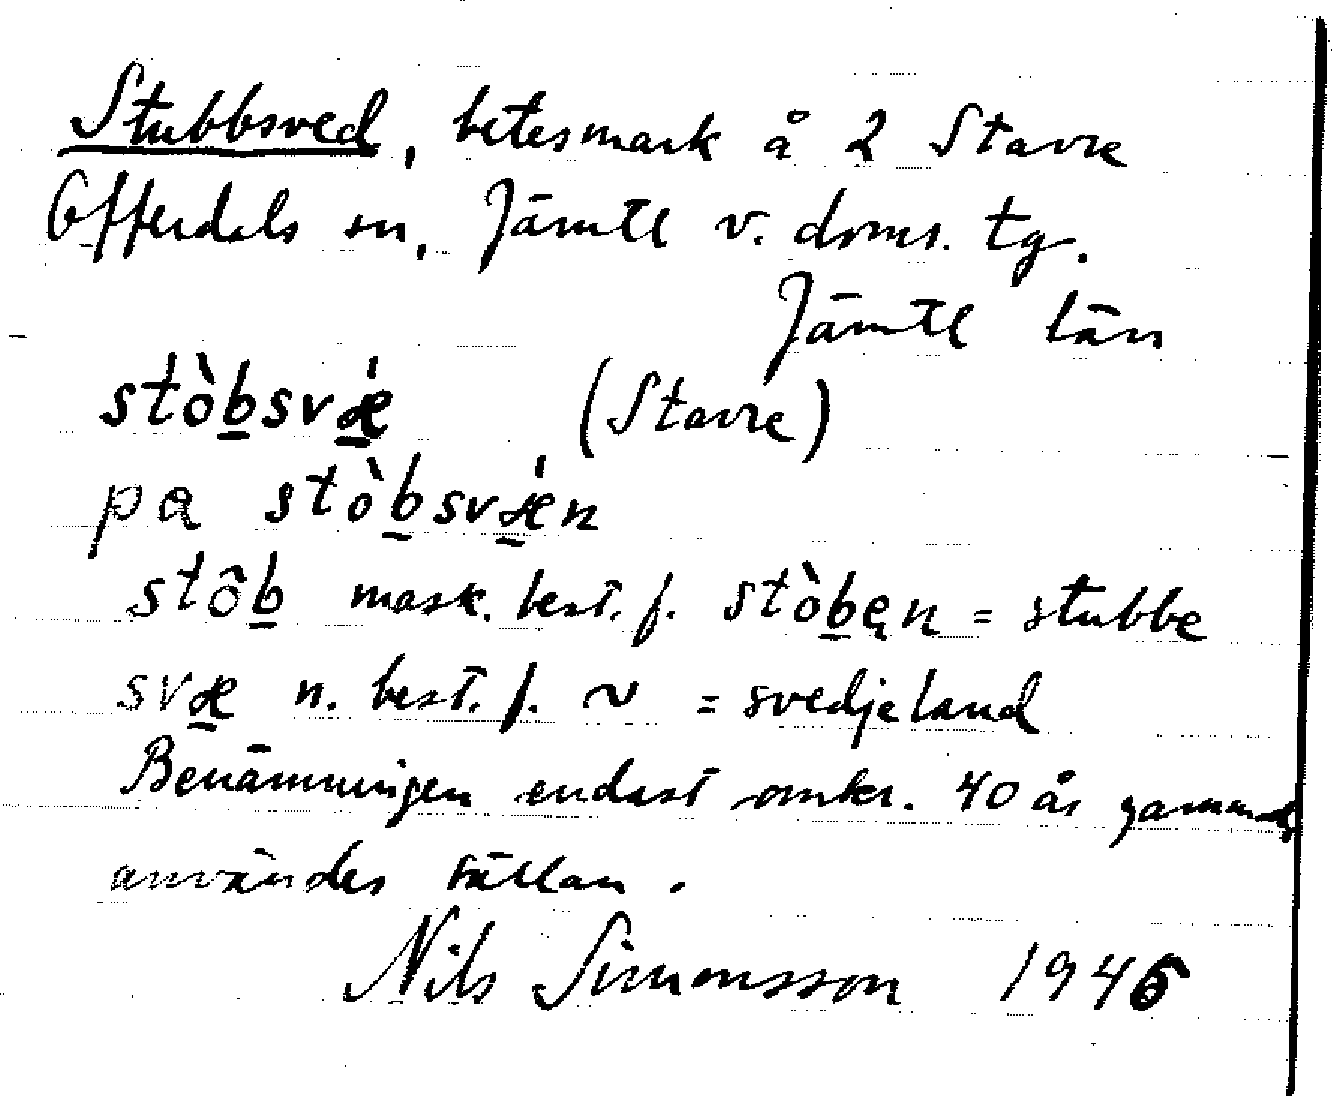 Stubbsved, betesmark å 2 Stavre
Offerdals sn, Jämtl v. doms. tg.
Jämtl län
stòb̲svǽ̲ (Stavre)
pa stòb̲svǽ̲n
stôb̲ mask. best. f. stòb̲ęn = stubbe
svæ̲ n. best. f. ~ = svedjeland
Benämningen endast omkr. 40 år gammal
användes sällan.
Nils Simonsson 1945